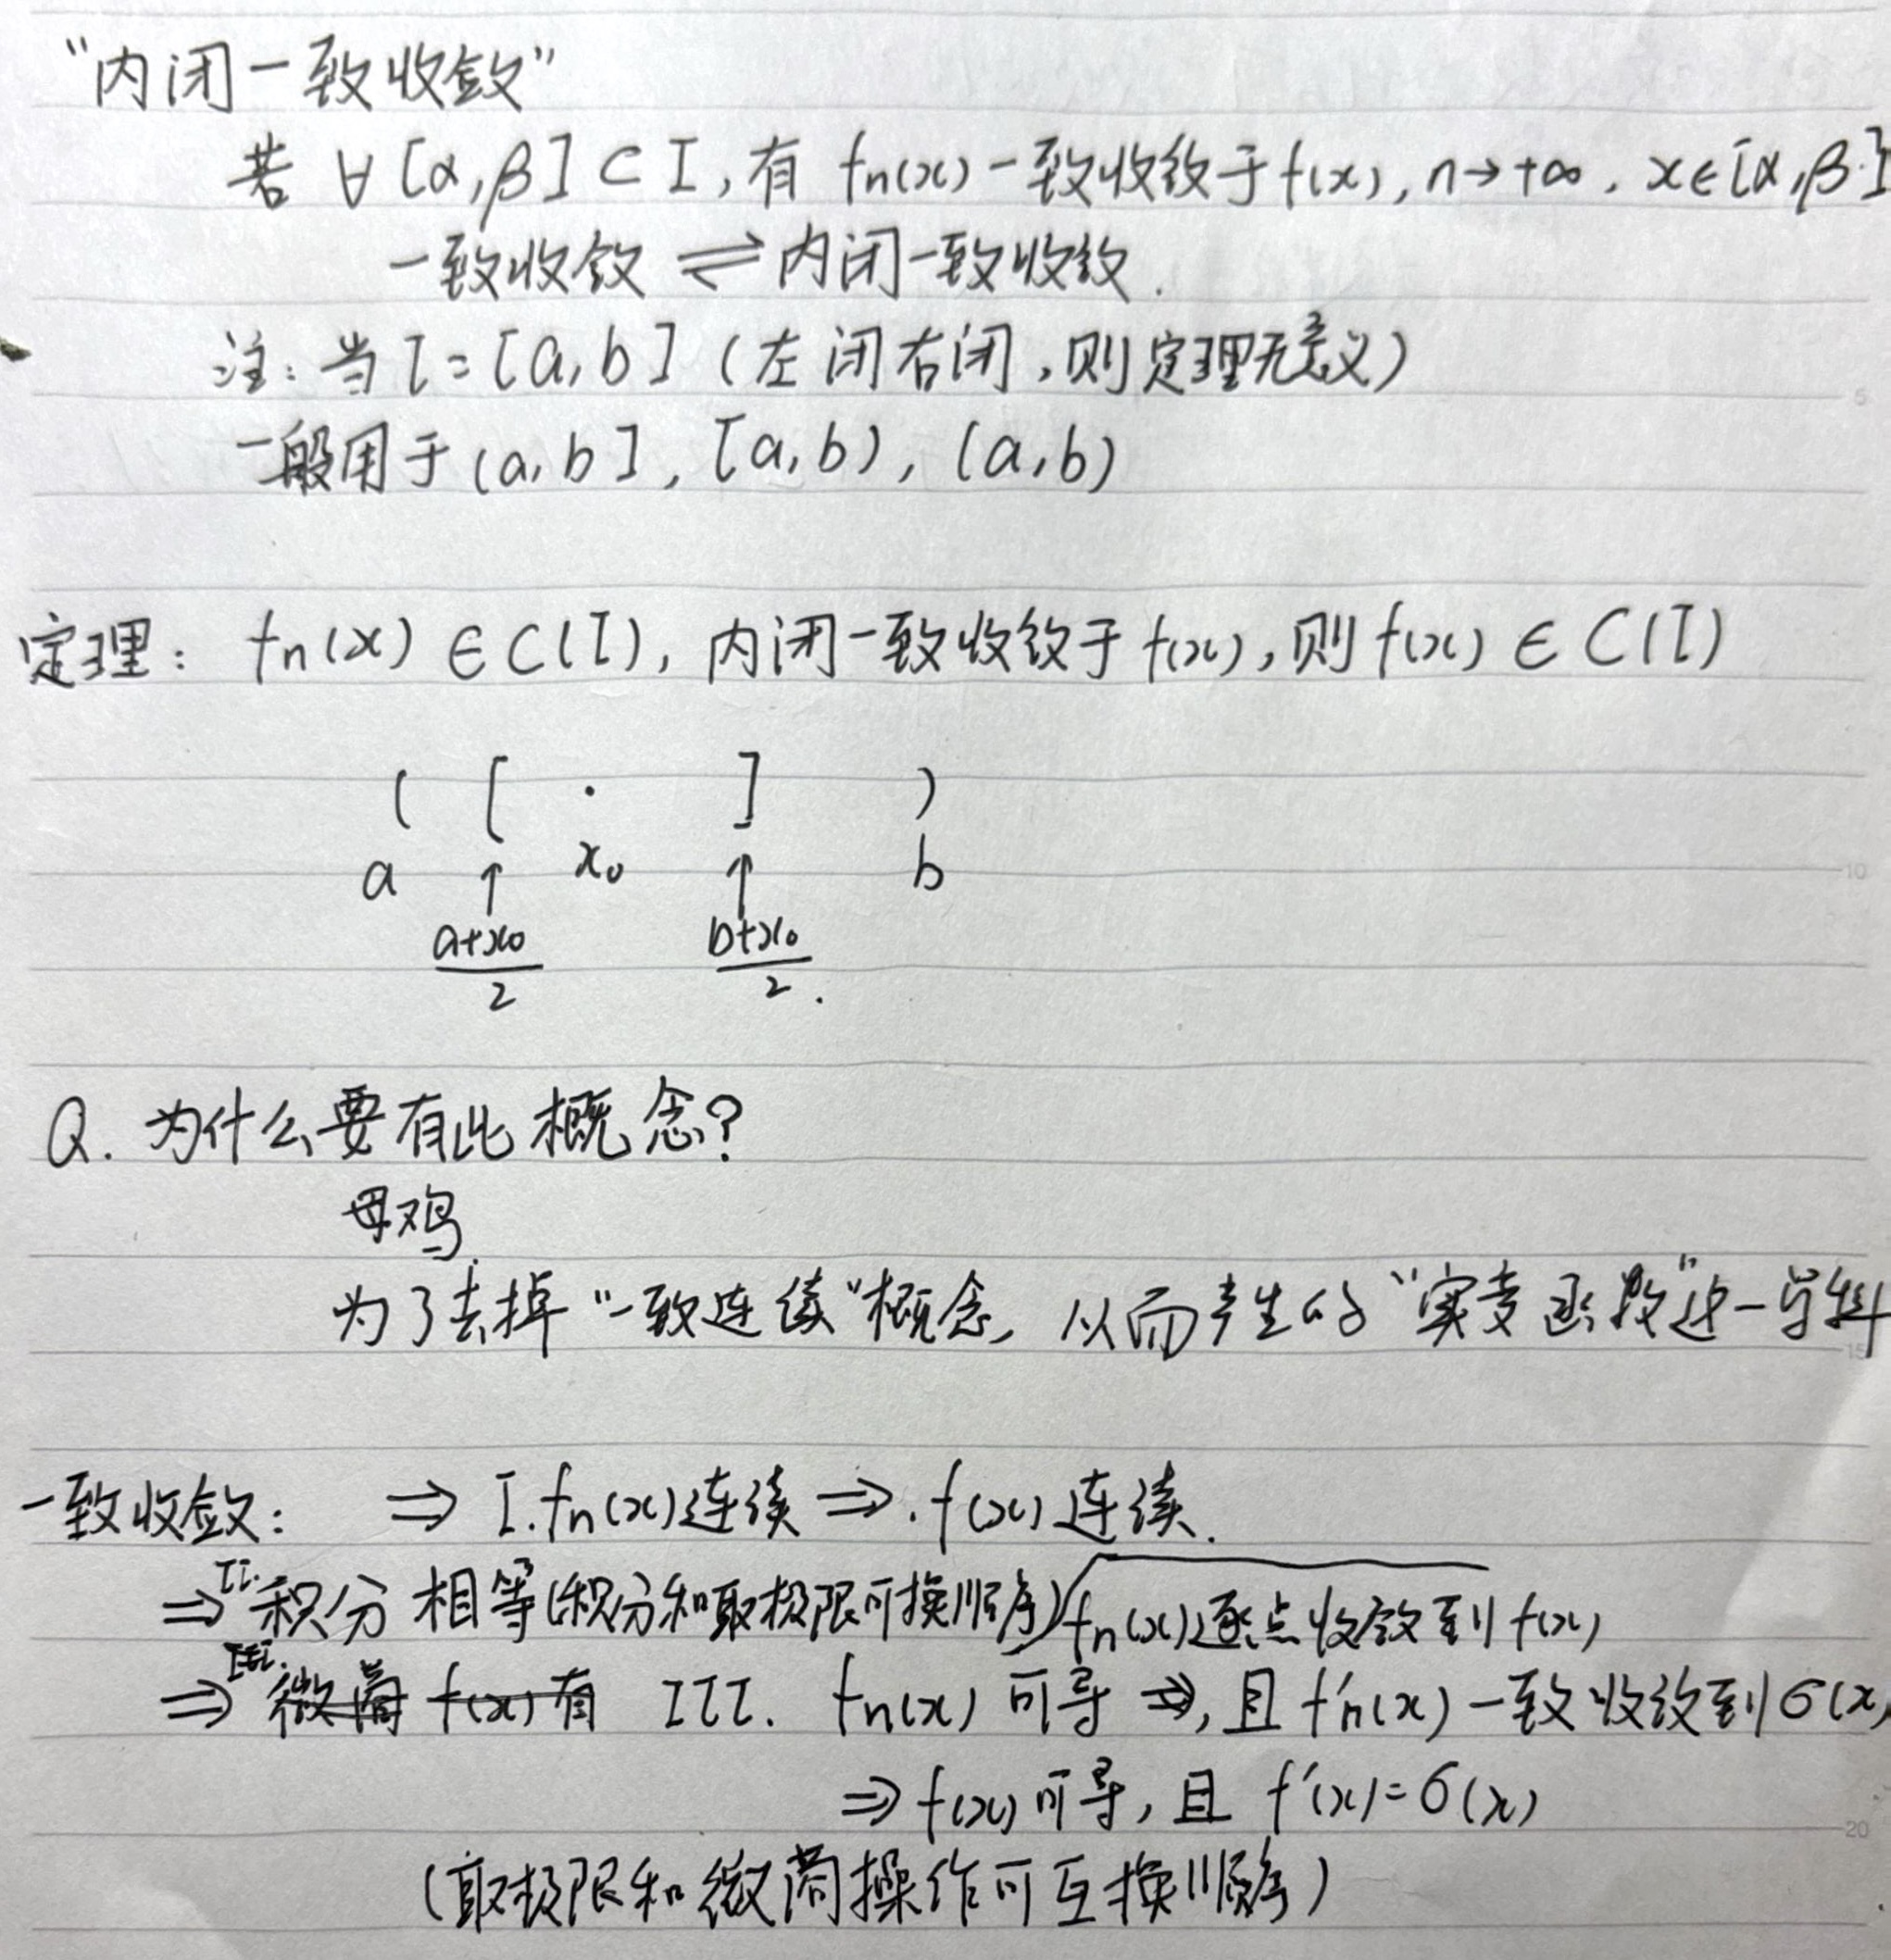 “内闭一致收敛”
若 ∀ [α,β] ⊂ I, 有 fn(x) 一致收敛于 f(x), n→+∞, x∈[α,β]
一致收敛 ⇌ 内闭一致收敛.
注: 当 I = [a,b] (左闭右闭, 则定理无意义)
一般用于 (a,b], [a,b), (a,b)
定理: fn(x) ∈ C(I), 内闭一致收敛于 f(x), 则 f(x) ∈ C(I)
( [ · ] )
a ↑ x₀ ↑ b
(a+x₀)/2 (b+x₀)/2.
Q. 为什么要有此概念?
母鸡.
为了去掉“一致连续”概念, 从而产生的“实变函数”这一学科
一致收敛: ⇒ I. fn(x)连续 ⇒. f(x)连续.
⇒ II. 积分相等(积分和取极限可换顺序) fn(x)逐点收敛到f(x)
⇒ III. 微商 f(x)有 III. fn(x) 可导 ⇒, 且 f'n(x) 一致收敛到σ(x)
⇒ f(x) 可导, 且 f'(x)=σ(x)
(取极限和微商操作可互换顺序)